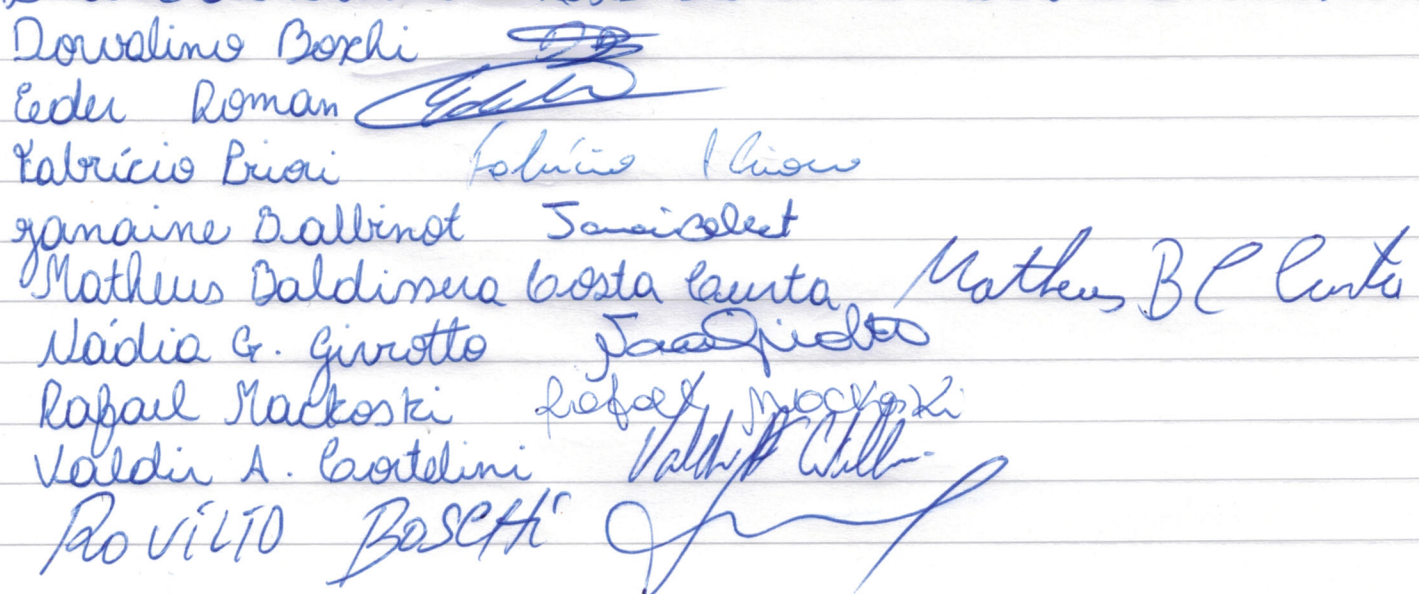 Dorvalino Boschi
Eeder Roman
Fabrício Priori Fabrício
Janaine Balbinot
Matheus Baldissera Costa Curta Matheus B C Curta
Nádia G. Girotto
Rafael Mackoski Rafael Mackoski
Valdir A. Cortelini
ROVÍLIO BOSCHI